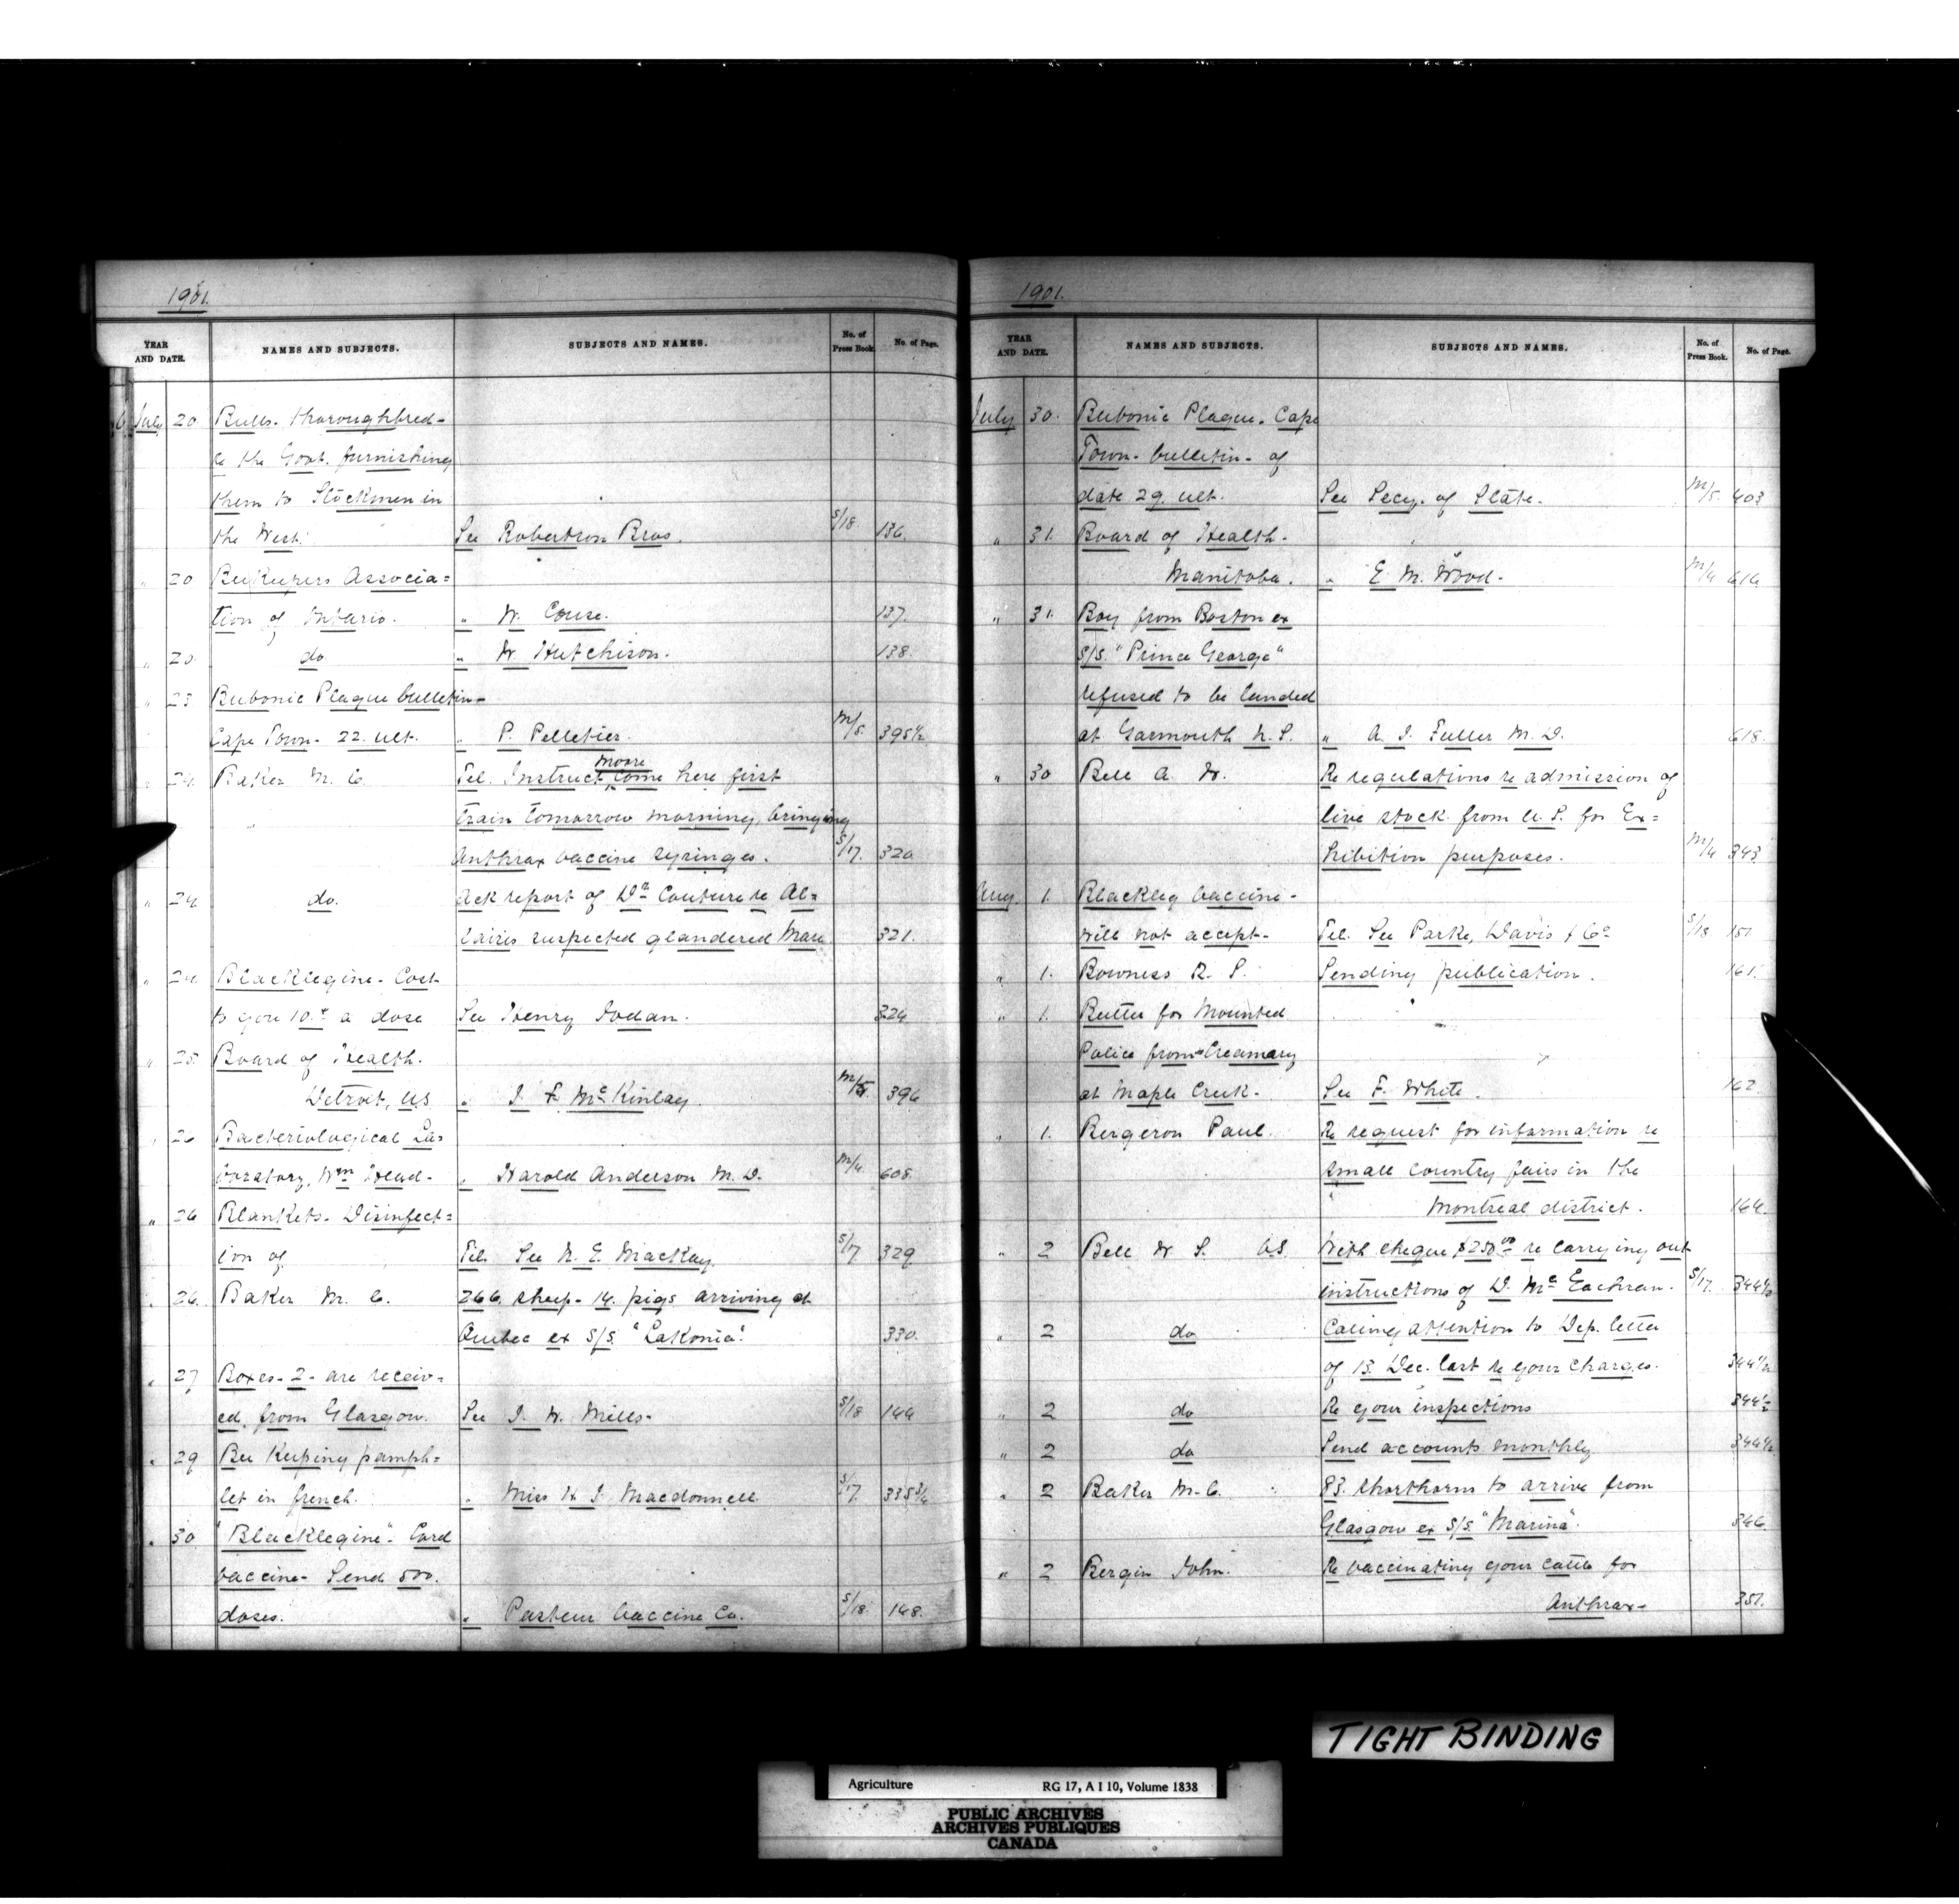 1901.
YEAR AND DATE. NAMES AND SUBJECTS. SUBJECTS AND NAMES. No. of Press Book. No. of Page.
July 20. Bulls. thoroughbred-
re the Govt. furnishing
them to Stockmen in
the West. See Robertson Bros. S/18. 136.
" 20 BeeKeepers Associa=
tion of Ontario. " W. Couse. 137.
" 20. do " W Hutchison. 138.
" 23 Bubonic Plague bulletin-
Cape Town- 22. ult. " P. Pelletier. M/5. 395½
" 24. Baker M. C. Tel. Instruct Moore come here first
" train tomorrow morning, bringing
Anthrax vaccine syringes. S/17. 320
" 24 do. Ack report of Dr. Couture re Al=
laires suspected glandered Mare 321.
" 24. Blacklegine- Cost
to you 10.c a dose See Henry Jodan. 324
" 25. Board of Health.
Detroit, US " J F McKinlay. M/5 396
" 26 Bacteriological La=
boratory, Wm Head- " Harold Anderson M. D. M/4. 608.
" 26 Blankets- Disinfect=
ion of Tel. See N. E. MacKay. S/17 329
" 26. Baker M. C. 266. sheep- 14. pigs arriving at
Quebec ex S/S. "Lakonia". 330.
" 27 Boxes- 2- are receiv=
ed. from Glasgow. See J. W. Mills- S/18 144
" 29 Bee Keeping pamph=
let in french. " Miss H J. Macdonnell. S/17. 335¾
" 30 "Blacklegine"- Cord
vaccine- Send 500.
doses. " Pasteur Vaccine Co. S/18. 148.
1901.
YEAR AND DATE. NAMES AND SUBJECTS. SUBJECTS AND NAMES. No. of Press Book. No. of Page.
July 30. Bubonic Plague. Cape
Town- bulletin- of
date 29. ult. See Secy. of State. M/5. 403
" 31. Board of Health-
Manitoba. " E. M. Wood. M/4 614
" 31. Boy from Boston ex
S/S. "Prince George"
refused to be landed
at Yarmouth N. S. " A. J. Fuller M. D. 618.
" 30 Bell A. W. Re regulations re admission of
live stock from U. S. for Ex=
hibition purposes. M/4 343
Aug. 1. Blackleg Vaccine-
will not accept- Tel. See Parke, Davis & Co. S/18 151.
" 1. Bowness R. S. Sending publication. 161.
" 1. Butter for Mounted
Police from Creamery
at Maple Creek- See F. White. 162.
" 1. Bergeron Paul. Re request for information re
small country fairs in the
" Montreal district. 164.
" 2 Bell W. S. VS. With cheque $250.00 re carrying out
instructions of D. McEachran. S/17. 344½
" 2 do Calling attention to Dep. letter
of 13. Dec. last re your charges. 344½
" 2 do Re your inspections 344½
" 2 do Send accounts monthly 344½
" 2 Baker M. C. 83. shorthorns to arrive from
Glasgow ex S/S. "Marina". 346.
" 2 Bergin John. Re vaccinating your cattle for
Anthrax- 351.
TIGHT BINDING
Agriculture RG 17, A I 10, Volume 1838
PUBLIC ARCHIVES
ARCHIVES PUBLIQUES
CANADA